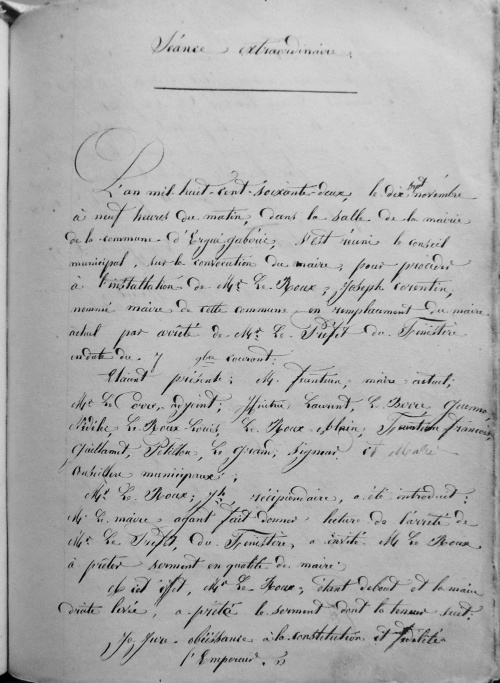 Séance extraordinaire.
L'an mil huit-cent-soixante-deux, le dix sept novembre
à neuf heures du matin, dans la salle de la mairie
de la commune d'Ergué-gabéric, s'est réuni le conseil
municipal, sur la convocation du maire, pour procéder
à l'installation de Mr Le Roux, Joseph Corentin,
nommé maire de cette commune en remplacement du maire
actuel par arrêté de Mr Le Préfet du Finistère
en date du 7 9bre courant.
Etaient présents: M. maire actuel;
Mr Le adjoint; Laurent, Le
Le Roux Louis, Le Roux Alain, François
Guillamet, Pétillon, Le Grand, Signour et
Conseillers municipaux;
Mr Le Roux, Jh, récipiendaire, a été introduit;
M. Le maire ayant fait donner lecture de l'arrêté de
Mr Le Préfet, du Finistère, a invité M. Le Roux
à prêter serment en qualité de maire.
A cet effet, Mr Le Roux, étant debout et la main
droite levée, a prêté le serment dont la teneur suit:
Je Jure obéissance à la constitution et fidélité
l'Empereur.